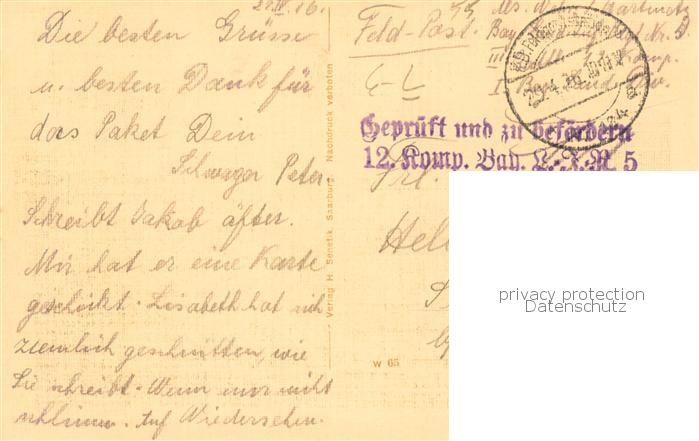 27.IV.16.
Die besten Grüsse
u. besten Dank für
das Paket Dein
Schwager Peter.
Schreibt Jakob öfter.
Mir hat er eine Karte
geschickt. Lisabeth hat sich
ziemlich geschnitten, wie
Sie schreibt. Wenn nur nicht
schlimm. Auf Wiedersehen.
Verlag H. Senetik, Saarburg. Nachdruck verboten
Feld-Post.
Geprüft und zu befördern
12. Komp. Bay. L.-I.-R. 5
Frl.
w 65
privacy protection
Datenschutz